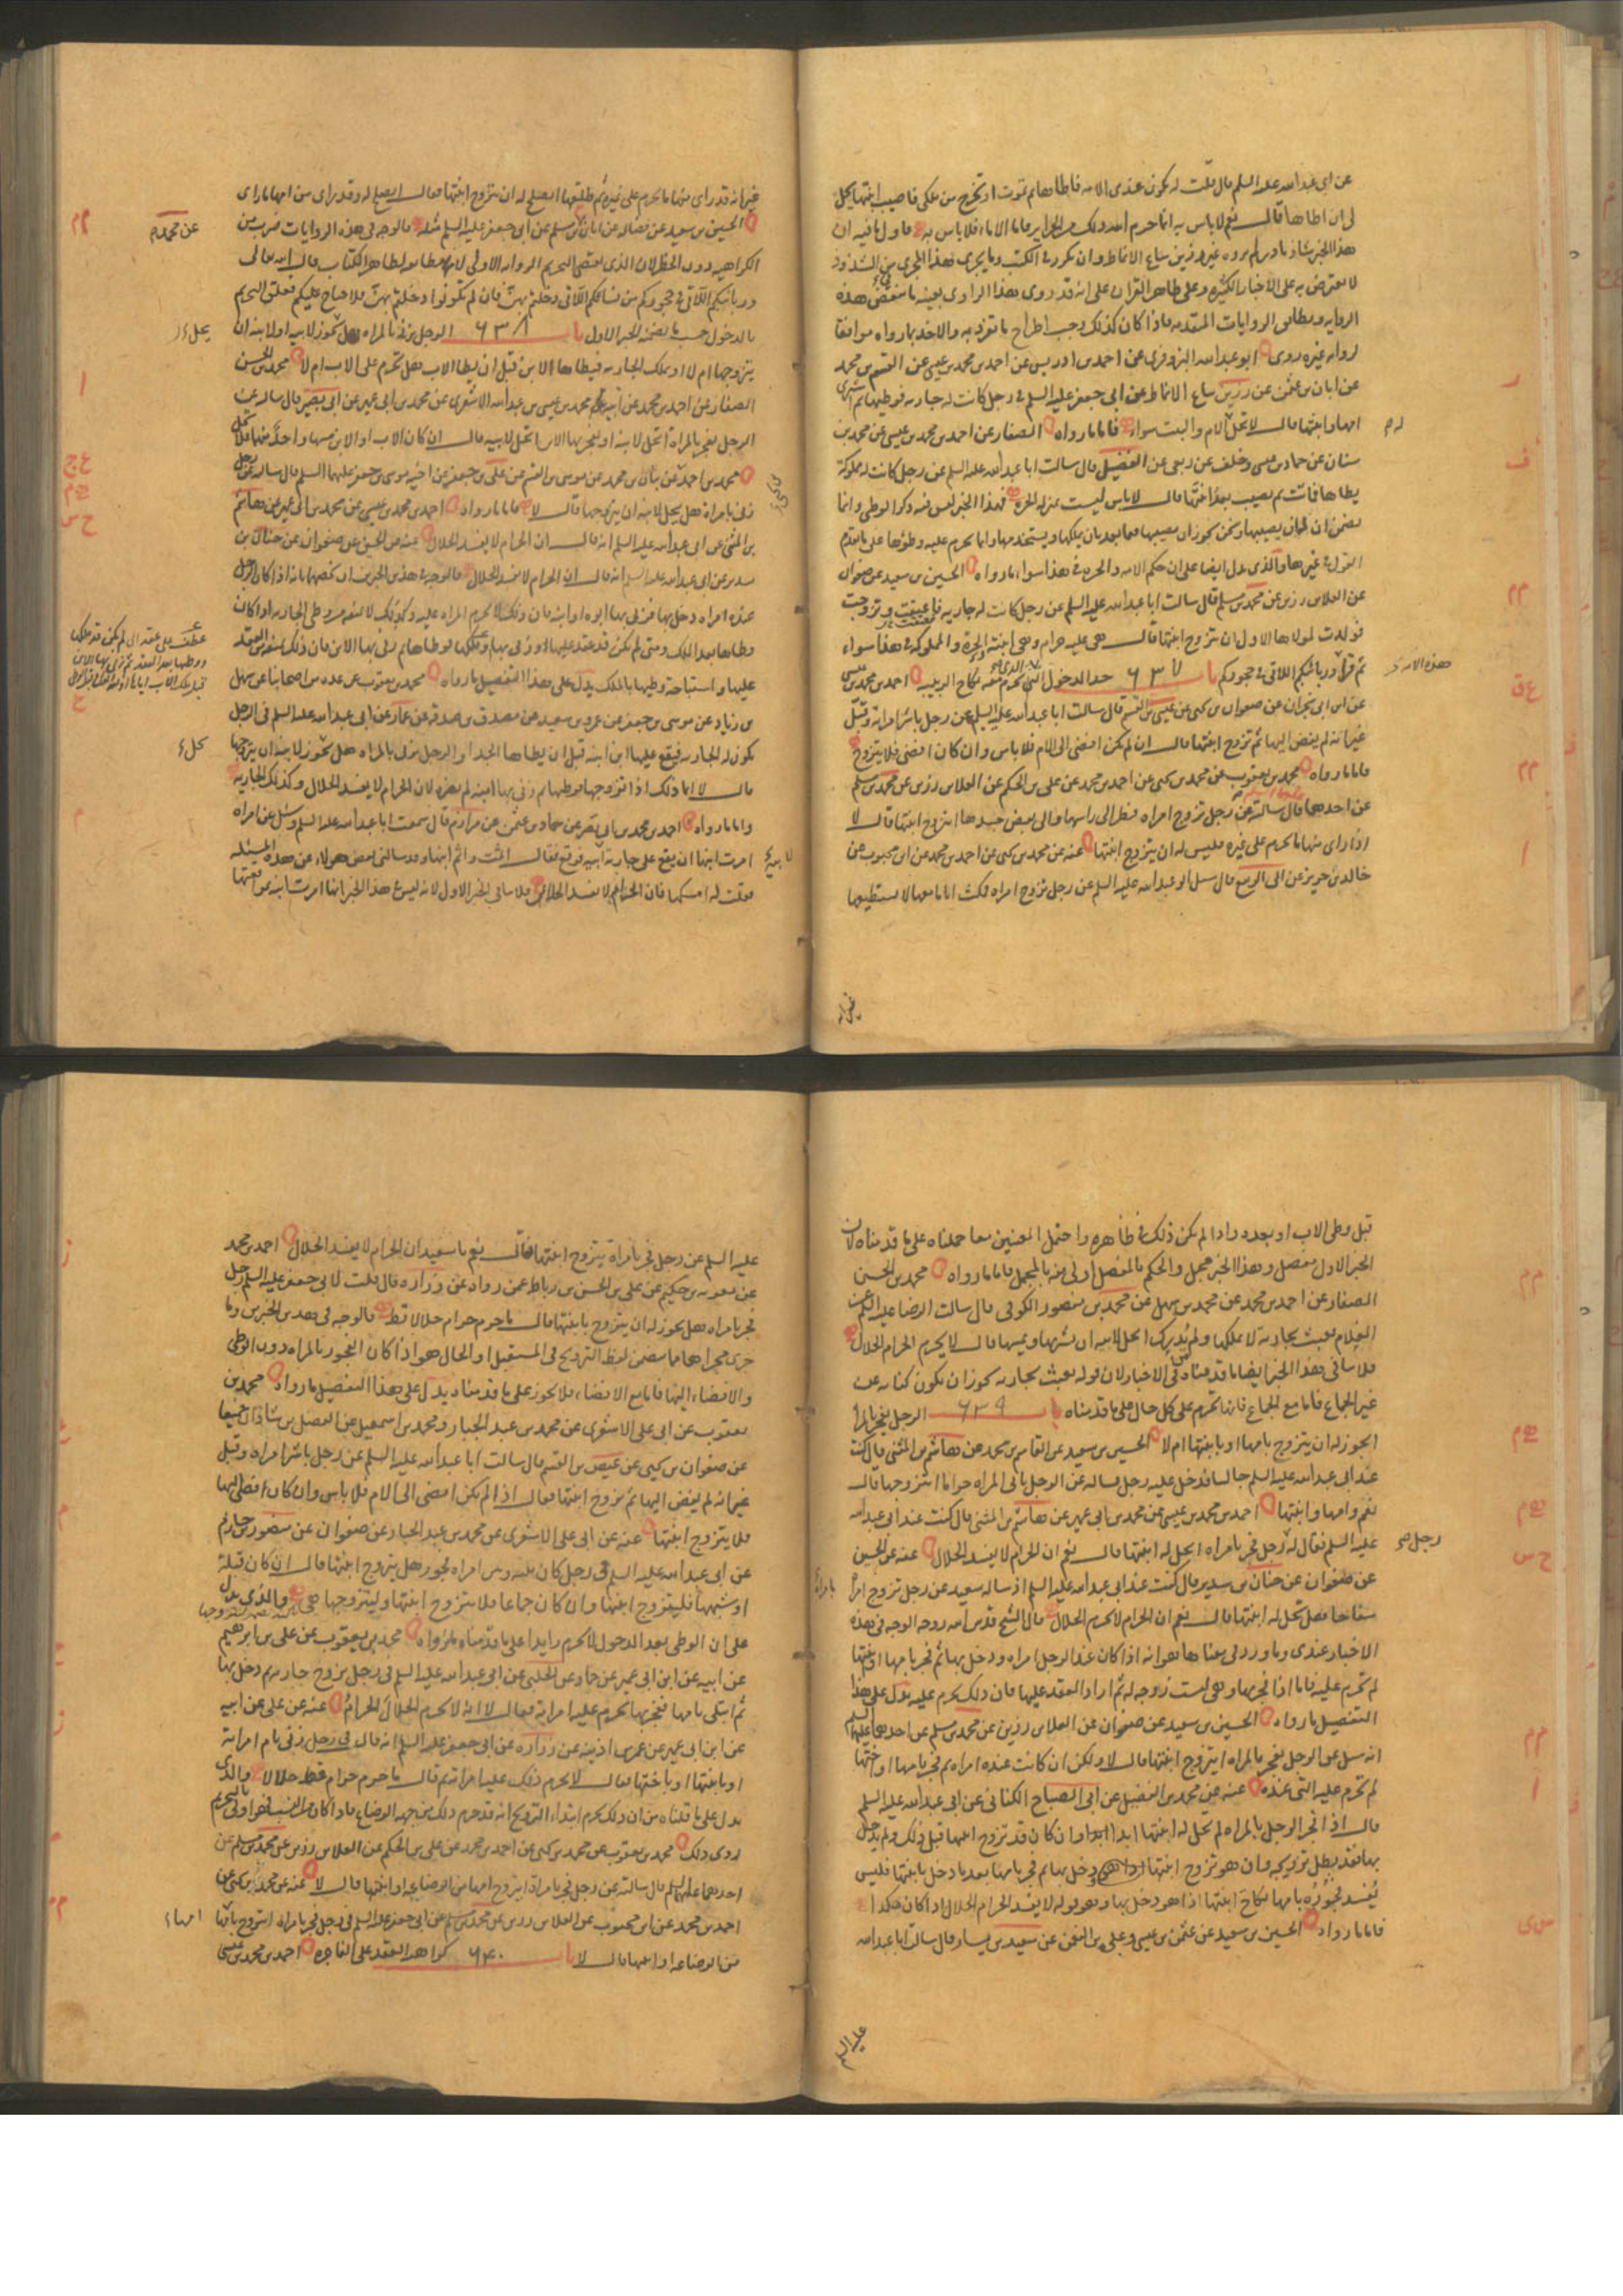 عن ابى عبد الله عليه السلم قال قلت له يكون عندى الامه فاطاها ثم تموت او تخرج من ملكى فاصيب ابنتها يحل
لى ان اطاها قال نعم لا باس به انما حرم الله ذلك من الحراير فاما الاماء فلا باس به فاول ما فيه ان
هذا الخبر شاذ نادر لم يروه غير رزين بياع الانماط وان تكرر فى الكتب وما يجرى هذا المجرى من الشذوذ
لا يعترض به على الاخبار الكثيره وعلى ظاهر القران على انه قد روى هذا الراوى بعينه ما ينقض هذه
الروايه ويطابق الروايات المتقدمه فاذا كان كذلك وجب اطراح ما تفرد به والاخذ بما رواه موافقا
لروايه غيره روى ابو عبد الله البزوفرى عن احمد بن ادريس عن احمد بن محمد بن عيسى عن القسم بن محمد
عن ابان بن عثمن عن رزين بياع الانماط عن ابى جعفر عليه السلم فى رجل كانت له جاريه فوطيها ثم اشترى
امها وابنتها قال لا تحل الام والبنت سواء فاما ما رواه الصفار عن احمد بن محمد بن عيسى عن محمد بن
سنان عن حماد بن عيسى وخلف عن ربعى عن الفضيل قال سالت ابا عبد الله عليه السلم عن رجل كانت له مملوكة
يطاها فماتت ثم يصيب بعد ابنتها قال لا باس ليست بمنزله الحره فهذا الخبر ليس فيه ذكر الوطى وانما
يضمن ان له ان يصيبها ونحن نجوز ان يصيبها فيما بعد بان يملكها ويستخدمها وانما يحرم عليه وطؤها على ما تقدم
القول فى غيرها والذى يدل ايضا على ان حكم الامه والحره فى هذا سواء ما رواه الحسين بن سعيد عن صفوان
عن العلاء بن رزين عن محمد بن مسلم قال سالت ابا عبد الله عليه السلم عن رجل كانت له جاريه فاعتقت وتزوجت
فولدت لمولاها الاول ان يتزوج ابنتها قال هى عليه حرام وهى ابنته الحرة والمملوكه فى هذا سواء
ثم قرأ وربائبكم اللاتى فى حجوركم باب ٦٣٧ حد الدخول الذى يحرم معه نكاح الربيبه احمد بن محمد بن عيسى
عن ابن ابى نجران عن صفوان بن يحيى عن عيص بن القسم قال سالت ابا عبد الله عليه السلم عن رجل باشر امراته وقبل
غير انه لم يفض اليها ثم تزوج ابنتها قال ان لم يكن افضى الى الام فلا باس وان كان افضى فلا يتزوج
فاما ما رواه محمد بن يعقوب عن محمد بن يحيى عن احمد بن محمد عن على بن الحكم عن العلاء بن رزين عن محمد بن مسلم
عن احدهما قال سالته عن رجل تزوج امراه فنظر الى راسها والى بعض جسدها ايتزوج ابنتها قال لا
اذا راى منها ما يحرم على غيره فليس له ان يتزوج ابنتها عنه عن محمد بن يحيى عن احمد بن محمد عن ابن محبوب عن
خالد بن جرير عن ابى الربيع قال سئل ابو عبد الله عليه السلم عن رجل تزوج امراه فمكث اياما معها لا يستطيعها
غير انه قد راى منها ما يحرم على غيره ثم طلقها ايصلح له ان يتزوج ابنتها فقال ايصلح له وقد راى من امها ما راى
الحسين بن سعيد عن فضاله عن ابان عن مسلم عن ابى جعفر عليه السلم مثله فالوجه فى هذه الروايات ضرب من
الكراهيه دون الحظر لان الذى يقتضى التحريم الروايه الاولى لانها مطابقه لظاهر الكتاب قال الله تعالى
وربائبكم اللاتى فى حجوركم من نسائكم اللاتى دخلتم بهن فان لم تكونوا دخلتم بهن فلا جناح عليكم فعلق التحريم
بالدخول حسب ما تضمنه الخبر الاول باب ٦٣٨ الرجل يزنى بالمراه هل تجوز لابيه او لابنه ان
يتزوجها ام لا او يملك الجاريه فيطاها الابن قبل ان يطا الاب هل تحرم على الاب ام لا محمد بن الحسن
الصفار عن احمد بن محمد عن ابيه محمد بن عيسى بن عبد الله الاشعرى عن محمد بن ابى عمير عن ابى بصير قال سالته عن
الرجل يفجر بالمراة اتحل لابنه او يفجر بها الابن اتحل لابيه قال ان كان الاب او الابن مسها واحد منهما فلا تحل
محمد بن احمد عن بنان بن محمد عن موسى بن القسم عن على بن جعفر عن اخيه موسى بن جعفر عليهما السلم قال سالته عن رجل
زنى بامراة هل يحل لابنه ان يتزوجها قال لا فاما ما رواه احمد بن محمد بن عيسى عن محمد بن ابى عمير عن هاشم
بن المثنى عن ابى عبد الله عليه السلم انه قال ان الحرام لا يفسد الحلال عنه عن الحسن عن صفوان عن حنان بن
سدير عن ابى عبد الله عليه السلم انه قال ان الحرام لا يفسد الحلال فالوجه فى هذين الخبرين ان نخصهما بانه اذا كان الرجل
عنده امراه دخل بها فزنى بها ابوه او ابنه فان ذلك لا يحرم المراه عليه وكذلك لا تفسد وطى الجاريه اذا كان
وطاها بعد الملك ومتى لم يكن قد عقد عليها او زنى بها وملكها فوطاها ثم زنى بها الابن فان ذلك يفسد العقد
عليها واستباحة وطيها بالملك يدل على هذا التفصيل ما رواه محمد بن يعقوب عن عده من اصحابنا عن سهل
بن زياد عن موسى بن جعفر عن عمرو بن سعيد عن مصدق بن صدقه عن عمار عن ابى عبد الله عليه السلم فى الرجل
تكون له الجاريه فيقع عليها ابن ابنه قبل ان يطاها الجد او الرجل يزنى بالمراه هل تجوز لابنه ان يتزوجها
قال لا انما ذلك اذا تزوجها فوطيها ثم زنى بها ابنه لم يضره لان الحرام لا يفسد الحلال وكذلك الجاريه
واما ما رواه احمد بن محمد بن ابى نصر عن حماد بن عثمن عن مرازم قال سمعت ابا عبد الله عليه السلم وسئل عن امراه
امرت ابنها ان يقع على جاريه ابيه فوقع فقال اثمت واثم ابنها وقد سالنى بعض هولاء عن هذه المسئله
فقلت له امسكها فان الحرام لا يفسد الحلال فلا ينافى الخبر الاول لانه ليس فى هذا الخبر انها امرت ابنه بمواقعتها
قبل وطى الاب او بعده واذا لم يكن ذلك فى ظاهره واحتمل المعنيين معا حملناه على ما قدمناه لان
الخبر الاول مفصل وهذا الخبر مجمل والحكم بالمفصل اولى منه بالمجمل فاما ما رواه محمد بن الحسن
الصفار عن احمد بن محمد عن محمد بن سهل عن محمد بن منصور الكوفى قال سالت الرضا عليه السلم عن
الغلام يعبث بجاريه لا يملكها ولم يدرك ايحل لابيه ان يشتريها ويمسها قال لا يحرم الحرام الحلال
فلا ينافى هذا الخبر ايضا ما قدمناه من الاخبار لان قوله يعبث بجاريه يجوز ان يكون كنايه عن
غير الجماع فاما مع الجماع فانها تحرم على كل حال على ما قدمناه باب ٦٣٩ الرجل يفجر بالمرأ
ايجوز له ان يتزوج بامها او بابنتها ام لا الحسين بن سعيد عن القاسم بن محمد عن هاشم بن المثنى قال كنت
عند ابى عبد الله عليه السلم جالسا فدخل عليه رجل فساله عن الرجل ياتى المراه حراما ايتزوجها قال
نعم وامها وابنتها احمد بن محمد بن عيسى عن محمد بن ابى عمير عن هاشم بن المثنى قال كنت عند ابى عبد الله
عليه السلم فقال له رجل فجر بامراه ايحل له ابنتها قال نعم ان الحرام لا يفسد الحلال عنه عن الحسين
عن صفوان عن حنان بن سدير قال كنت عند ابى عبد الله عليه السلم اذ ساله سعيد عن رجل تزوج امرأ
سفاحا هل تحل له ابنتها قال نعم ان الحرام لا يحرم الحلال قال الشيخ قدس الله روحه الوجه فى هذه
الاخبار عندى وما ورد فى معناها هو انه اذا كان عند الرجل امراه ودخل بها ثم فجر بامها او ابنتها
لم تحرم عليه فاما اذا فجر بها وهى ليست زوجه له ثم اراد العقد عليها فان ذلك يحرم عليه يدل على هذا
التفصيل ما رواه الحسين بن سعيد عن صفوان عن العلاء بن رزين عن محمد بن مسلم عن احدهما عليهما السلم
انه سئل عن الرجل يفجر بالمراه ايتزوج ابنتها قال لا ولكن ان كانت عنده امراه ثم فجر بامها او اختها
لم تحرم عليه التى عنده عنه عن محمد بن الفضيل عن ابى الصباح الكنانى عن ابى عبد الله عليه السلم
قال اذا فجر الرجل بالمراه لم تحل له ابنتها ابدا وان كان قد تزوج ابنتها قبل ذلك ولم يدخل
بها فقد بطل تزويجه وان هو تزوج ابنتها ودخل بها ثم فجر بامها بعد ما دخل بابنتها فليس
يفسد فجوره بامها نكاح ابنتها اذا هو دخل بها وهو قوله لا يفسد الحرام الحلال اذا كان هكذا
فاما ما رواه الحسين بن سعيد عن عثمن بن عيسى وعلى بن النعمن عن سعيد بن يسار قال سالت ابا عبد الله
عليه السلم عن رجل فجر بامراة يتزوج ابنتها قال نعم يا سعيد ان الحرام لا يفسد الحلال احمد بن محمد
عن معويه بن حكيم عن على بن الحسن بن رباط عمن رواه عن زراره قال قلت لابى جعفر عليه السلم رجل
فجر بامراه هل يجوز له ان يتزوج بابنتها قال ما حرم حرام حلالا قط فالوجه فى هذين الخبرين وما
جرى مجراهما مما يتضمن لفظ التزويج فى المستقبل او الحال هو اذا كان الفجور بالمراه دون الوطى
والافضاء اليها فاما مع الافضاء فلا يجوز على ما قدمناه يدل على هذا التفصيل ما رواه محمد بن
يعقوب عن ابى على الاشعرى عن محمد بن عبد الجبار ومحمد بن اسمعيل عن الفضل بن شاذان جميعا
عن صفوان بن يحيى عن عيص بن القسم قال سالت ابا عبد الله عليه السلم عن رجل باشر امراه وقبل
غير انه لم يفض اليها ثم تزوج ابنتها فقال اذا لم يكن افضى الى الام فلا باس وان كان افضى اليها
فلا يتزوج ابنتها عنه عن ابى على الاشعرى عن محمد بن عبد الجبار عن صفوان عن منصور بن حازم
عن ابى عبد الله عليه السلم فى رجل كان بينه وبين امراه فجور هل يتزوج ابنتها قال ان كان قبلة
او شبهها فليتزوج ابنتها وان كان جماعا فلا يتزوج ابنتها وليتزوجها هى والذى يدل
على ان الوطى بعد الدخول لا يحرم زايدا على ما قدمناه ما رواه محمد بن يعقوب عن على بن ابرهيم
عن ابيه عن ابن ابى عمير عن حماد عن الحلبى عن ابى عبد الله عليه السلم فى رجل تزوج جاريه فدخل بها
ثم ابتلى بامها ففجر بها اتحرم عليه امراته فقال لا انه لا يحرم الحلال الحرام عنه عن على عن ابيه
عن ابن ابى عمير عن عمر بن اذينه عن زراره عن ابى جعفر عليه السلم انه قال فى رجل زنى بام امراته
او بابنتها او باختها فقال لا يحرم ذلك عليه امراته ثم قال ما حرم حرام قط حلالا والذى
يدل على ما قلناه من ان ذلك يحرم ابتداء التزويج انه قد حرم ذلك من جهه الرضاع فاذا كان من النسب فهو اولى بالتحريم
روى ذلك محمد بن يعقوب عن محمد بن يحيى عن احمد بن محمد عن على بن الحكم عن العلاء بن رزين عن محمد بن مسلم عن
احدهما عليهما السلم قال سالته عن رجل فجر بامراة ايتزوج امها من الرضاعه او ابنتها قال لا عنه عن محمد بن يحيى عن
احمد بن محمد عن ابن محبوب عن العلاء بن رزين عن محمد بن مسلم عن ابى جعفر عليه السلم فى رجل فجر بامراه ايتزوج بامها
من الرضاعه او ابنتها قال لا باب ٦٤٠ كراهيه العقد على الفاجره احمد بن محمد بن عيسى